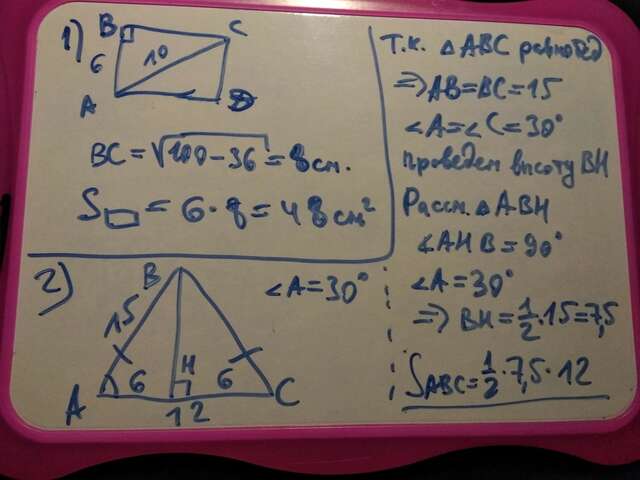 1)
B
C
6
10
A
D
BC = √100-36 = 8 см.
S▭ = 6·8 = 48 см²
2)
B
∠A = 30°
15
H
6
6
A
C
12
Т.к. △ABC равнобед
=> AB = BC = 15
∠A = ∠C = 30°
Проведем высоту BH
Рассм. △ABH
∠AHB = 90°
∠A = 30°
=> BH = 1/2 · 15 = 7,5
SABC = 1/2 · 7,5 · 12